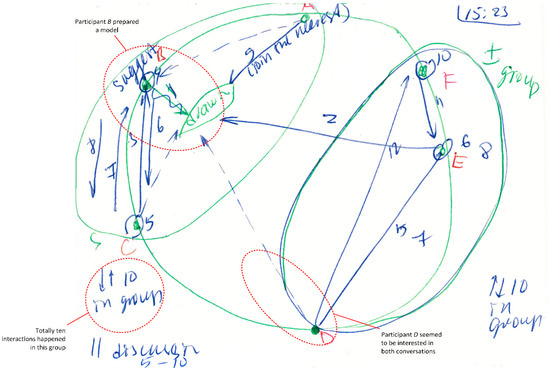 15:23
Participant B prepared
a model
A
B
suggest
9
(join out interest)
draw
10
F
± group
4
11
3
6
2
E
6
8
8
7
12
5
5
C
7
↓↑ 10
in group
D
Totally ten
interactions happened
in this group
Participant D seemed
to be interested in
both conversations
↑↓ 10
in
group
11 discussion
5-10